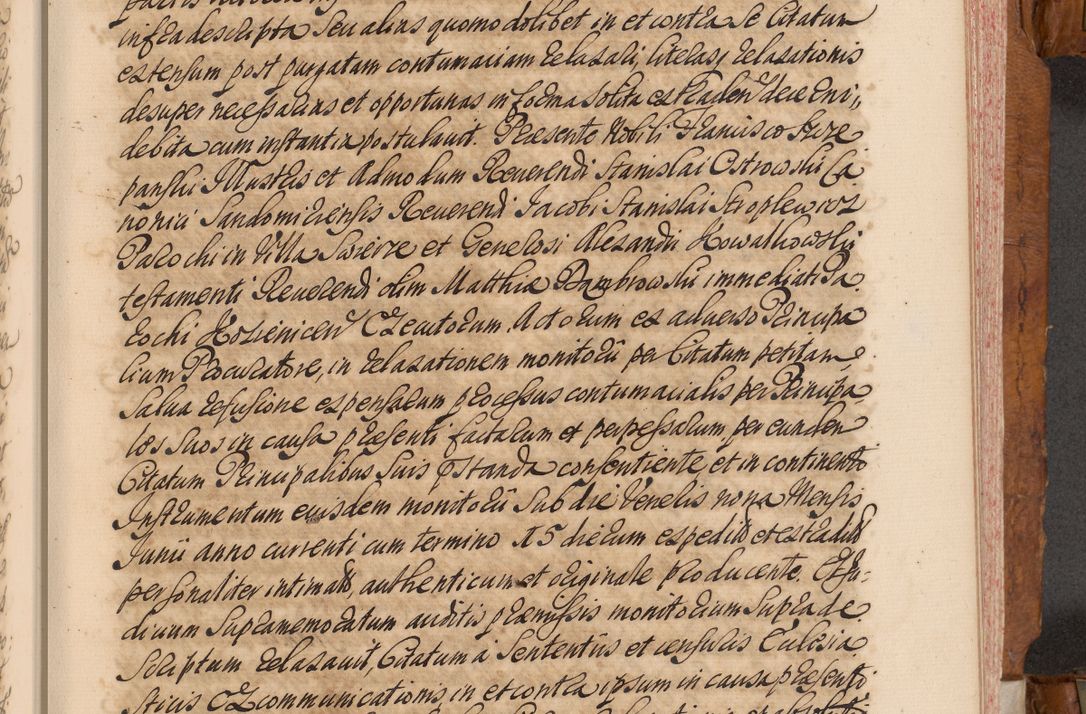 infra descripta seu alias quomodolibet in et contra se Citatum
extensum post purgatam contumaciam relaxari, literasq relaxationis
desuper necessarias et opportunas in forma solita extraden decerni,,
debita cum instantia postulavit. Praesente Nobili Francisco
panski Illustris et Admodum Reverendi Stanislai Ostrowski Ca
nonici Sandomiriensis Reverendi Jacobi Stanislai
Parochi in Villa et Generosi Alexandri Kowalkowski
testamenti Reverendi olim Matthiae Dąmbrowski immediati Pa
rochi Kozienicen Executorum Actorum ex adverso Principa
lium Procuratore, in relaxationem monitorii per Citatum petitam,
Salva refusione expensarum processus contumacialis per Principa
les suos in causa praesenti factarum et perpessarum per eunden
Citatum Principalibus suis pstanda consentiente et in continenti
Instrumentum eiusdem monitorii sub die Veneris nona Mensis
Junii anno currenti cum termino 15 dierum expediti et extraditi
personaliter intimati, authenticum et originale producente. Et Ju-
dicium Supramemoratum auditis praemissis monitorium supra de
scriptum relaxavit, Citatum a Sententiis et censuris Ecclesia
sticis Excommunicationis in et contra ipsum in causa praesenti